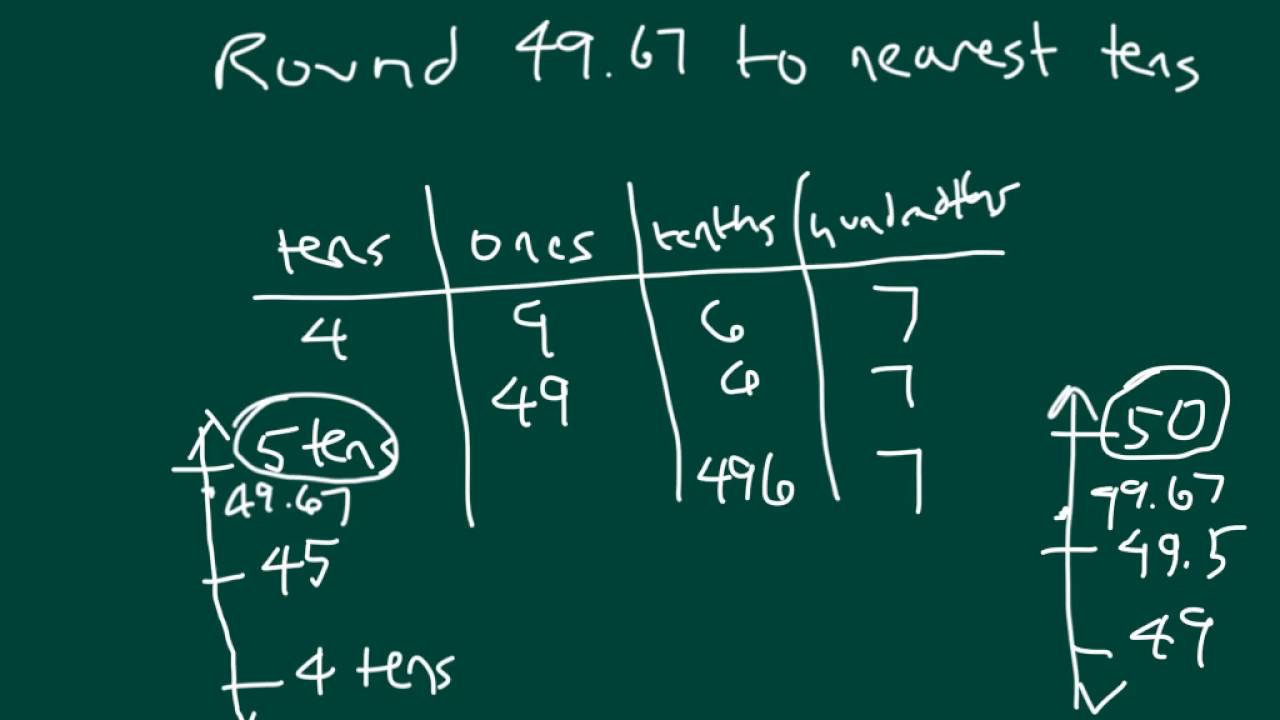 Round 49.67 to nearest tens
tens ones tenths hundredths
4 9 6 7
49 6 7
496 7
5 tens
49.67
45
4 tens
50
49.67
49.5
49